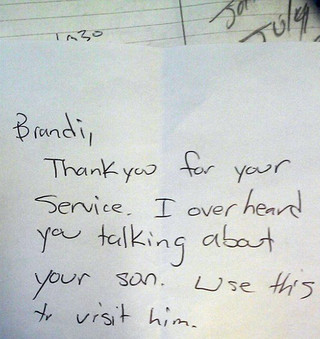 1 m30
July
Brandi,
Thank you for your
Service. I overheard
you talking about
your son. Use this
to visit him.